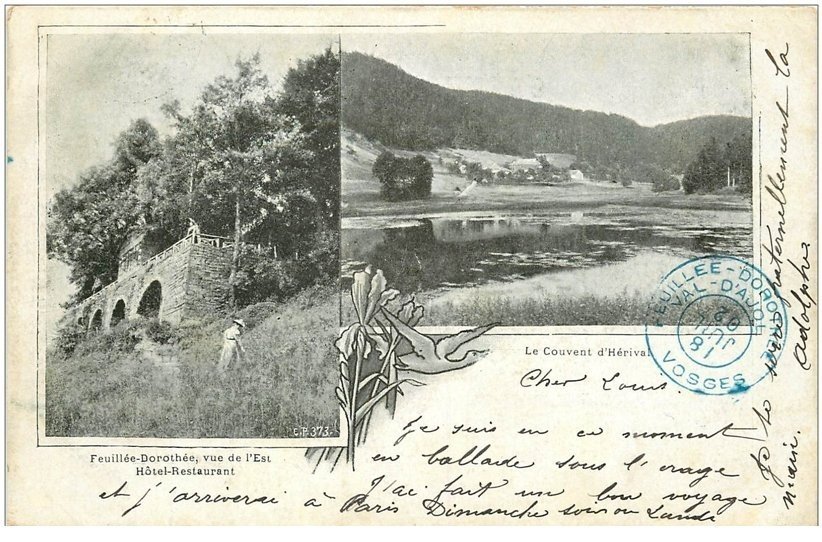 C.P. 373.
Feuillée-Dorothée, vue de l'Est
Hôtel-Restaurant
Le Couvent d'Hérival
FEUILLÉE-DOROTHÉE
VAL-D'AJOL
18
JUIL
02
VOSGES
Cher Louis.
Je suis en ce moment
en ballade sous l'orage
J'ai fait un bon voyage
et j'arriverai à Paris Dimanche soir ou Lundi
Je te serre fraternellement la
main.
Adolphe